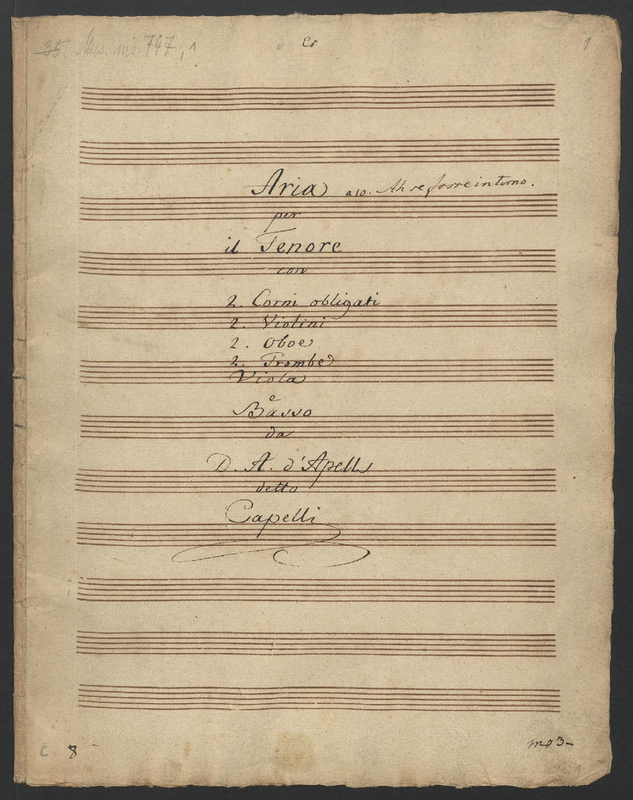 35. Mus. ms. 747, 1
Es
1
Aria a 10. Ah se fosse intorno.
per
il Tenore
con
2. Corni obligati
2. Violini
2. Oboe
2. Trombe
Viola
e
Basso
da
D. A. d'Apell
detto
Capelli
C 8